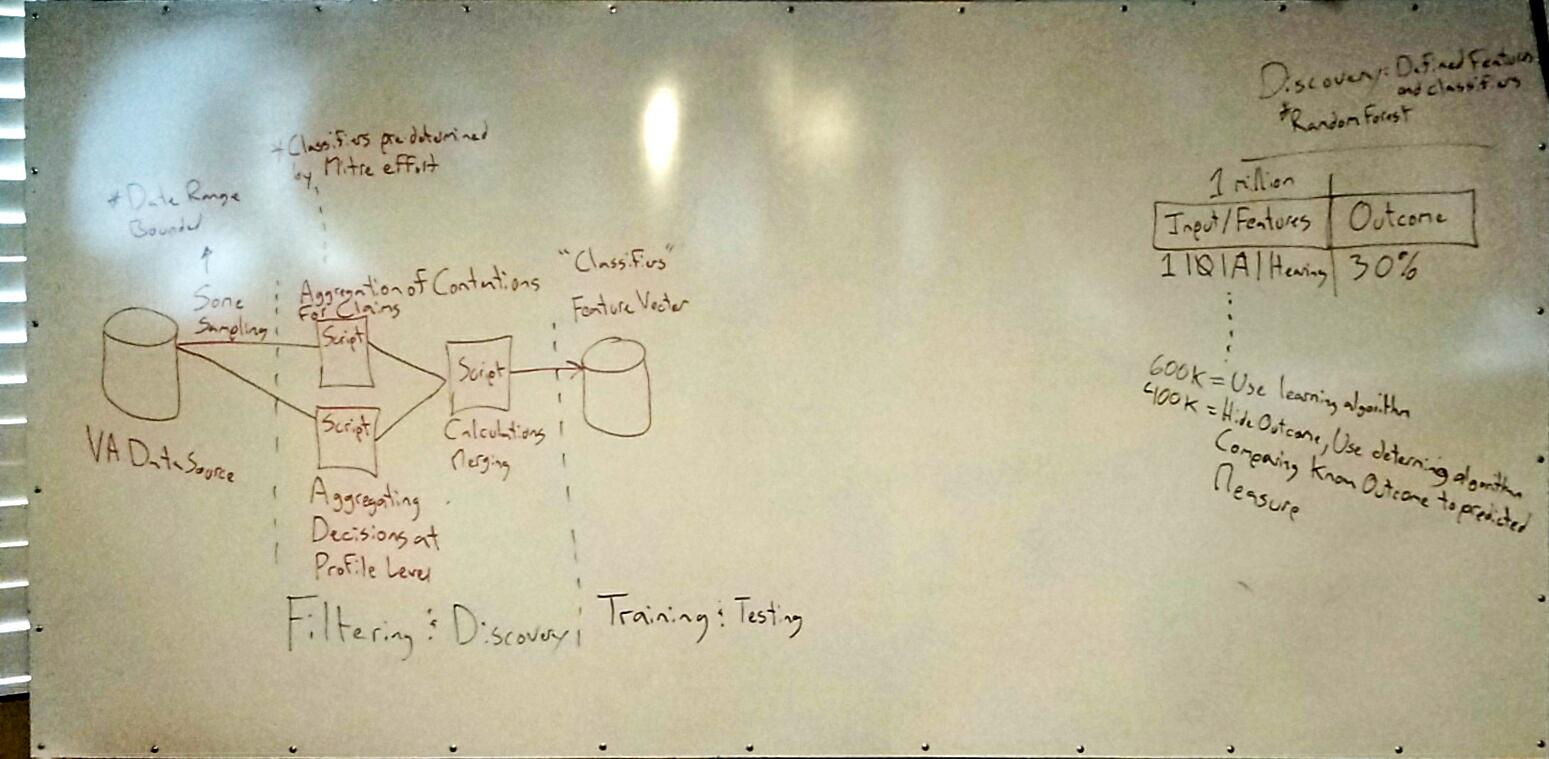 * Classifiers predetermined
by Mitre effort
* Date Range
Bounded
Some
Sampling
VA Data Source
Aggregation of Contentions
For Claims
Script
Script
Aggregating
Decisions at
Profile Level
Script
Calculations
Merging
"Classifiers"
Feature Vector
Filtering & Discovery
Training & Testing
Discovery: Defined Features
and classifiers
*Random Forest
1 million
Input/Features | Outcome
1 | Q | A | Hearing | 30%
600K = Use learning algorithm
400K = Hide Outcome, Use deterning algorithm
Comparing Known Outcome to predicted
Measure